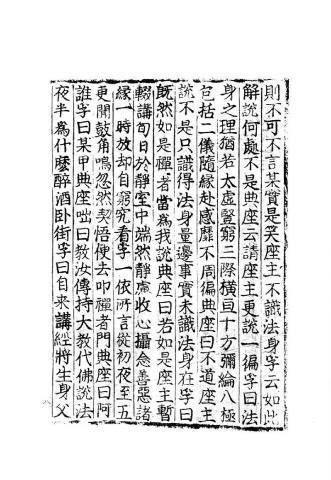 則不可不言某實是笑座主不識法身孚云如此
解說何處不是典座云請座主更說一徧孚曰法
身之理猶若太虛豎窮三際橫亘十方彌綸八極
包括二儀隨緣赴感靡不周徧典座曰不道座主
說不是只識得法身量邊事實未識法身在孚曰
旣然如是禪者當爲我說典座曰若如是座主暫
輟講旬日於靜室中端然靜慮收心攝念善惡諸
緣一時放却自窮究看孚一依所言從初夜至五
更聞鼓角鳴忽然契悟便去叩禪者門典座曰阿
誰孚曰某甲典座咄曰教汝傳持大教代佛說法
夜半爲什麽醉酒卧街孚曰自来講經將生身父